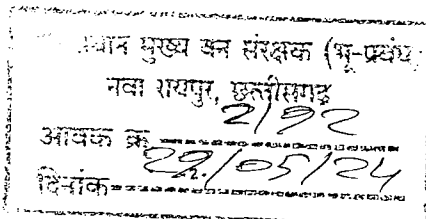 प्रधान मुख्य वन संरक्षक (भू-प्रबंध
नवा रायपुर, छत्तीसगढ़
आवक क्र. 2192
दिनांक 29/05/24